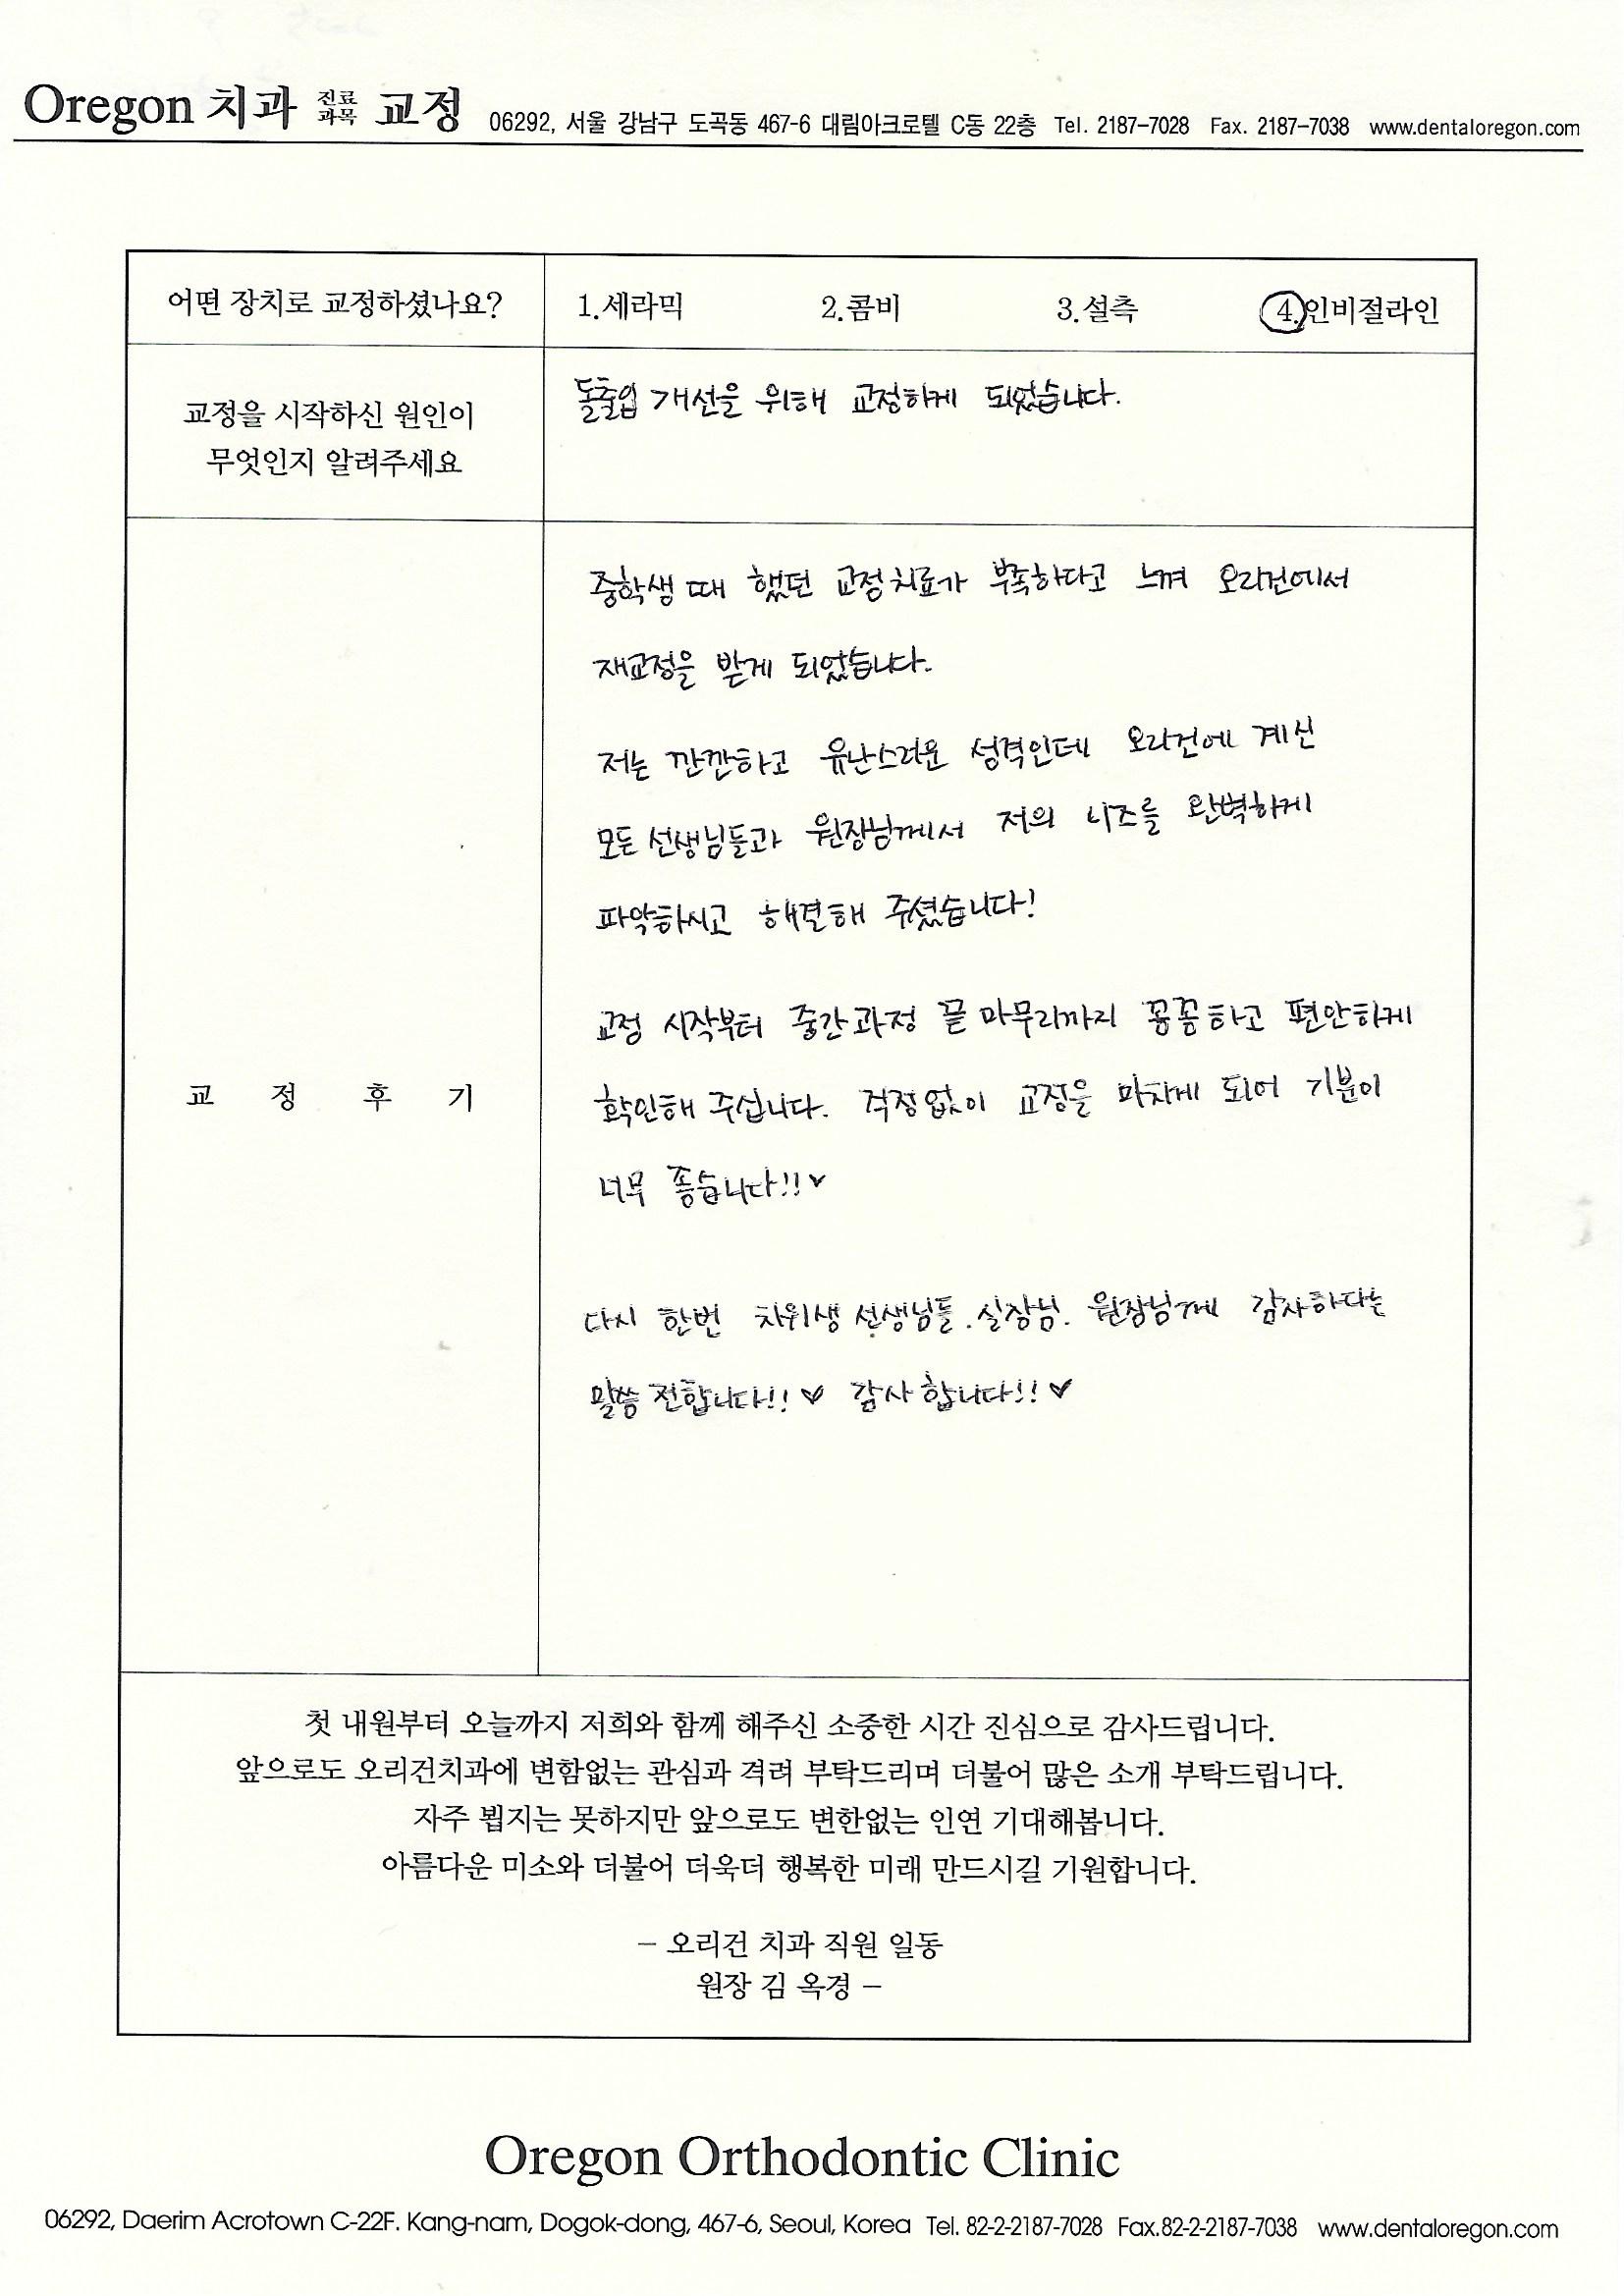 Oregon 치과 진료과목 교정 06292, 서울 강남구 도곡동 467-6 대림아크로텔 C동 22층 Tel. 2187-7028 Fax. 2187-7038 www.dentaloregon.com
어떤 장치로 교정하셨나요? 1.세라믹 2.콤비 3.설측 4.인비절라인
교정을 시작하신 원인이
무엇인지 알려주세요
돌출입 개선을 위해 교정하게 되었습니다.
교 정 후 기
중학생 때 했던 교정치료가 부족하다고 느껴 오리건에서
재교정을 받게 되었습니다.
저는 깐깐하고 유난스러운 성격인데 오리건에 계신
모든 선생님들과 원장님께서 저의 니즈를 완벽하게
파악하시고 해결해 주셨습니다!
교정 시작부터 중간과정 끝 마무리까지 꼼꼼하고 편안하게
확인해 주십니다. 걱정없이 교정을 마치게 되어 기분이
너무 좋습니다!!♥
다시 한번 치위생 선생님들. 실장님. 원장님께 감사하다는
말씀 전합니다!!♥ 감사합니다!!♥
첫 내원부터 오늘까지 저희와 함께 해주신 소중한 시간 진심으로 감사드립니다.
앞으로도 오리건치과에 변함없는 관심과 격려 부탁드리며 더불어 많은 소개 부탁드립니다.
자주 뵙지는 못하지만 앞으로도 변한없는 인연 기대해봅니다.
아름다운 미소와 더불어 더욱더 행복한 미래 만드시길 기원합니다.
– 오리건 치과 직원 일동
원장 김 옥경 –
Oregon Orthodontic Clinic
06292, Daerim Acrotown C-22F. Kang-nam, Dogok-dong, 467-6, Seoul, Korea Tel. 82-2-2187-7028 Fax.82-2-2187-7038 www.dentaloregon.com